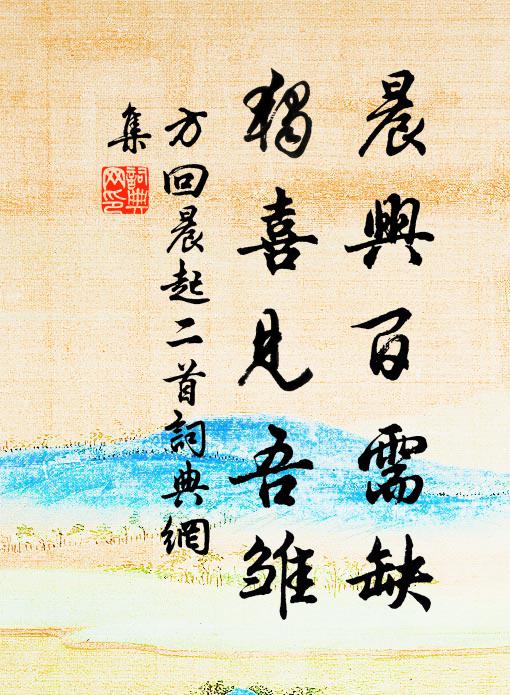 晨興百需缺
獨喜見吾雛
方回晨起二首詞典網
集
詞典
網印